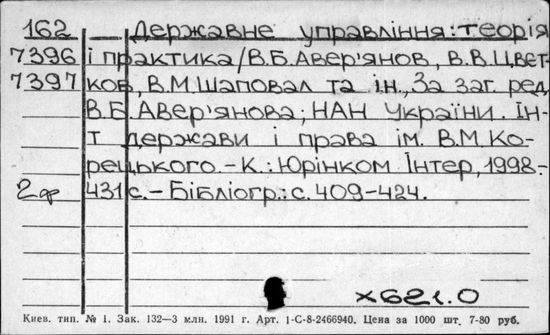 162 — Державне управління: теорія
7396 і практика / В.Б.Авер'янов, В.В.Цвет-
7397 ков, В.М.Шаповал та ін., За заг. ред.
В.Б.Авер'янова; НАН України. Ін-
т держави і права ім. В.М.Ко-
рецького. – К.: Юрінком Інтер, 1998.-
2ф 431 с. – Бібліогр.: с. 409-424.
х621.0
Києв. тип. № 1. Зак. 132—3 млн. 1991 г. Арт. 1-С-8-2466940. Цена за 1000 шт. 7-80 руб.